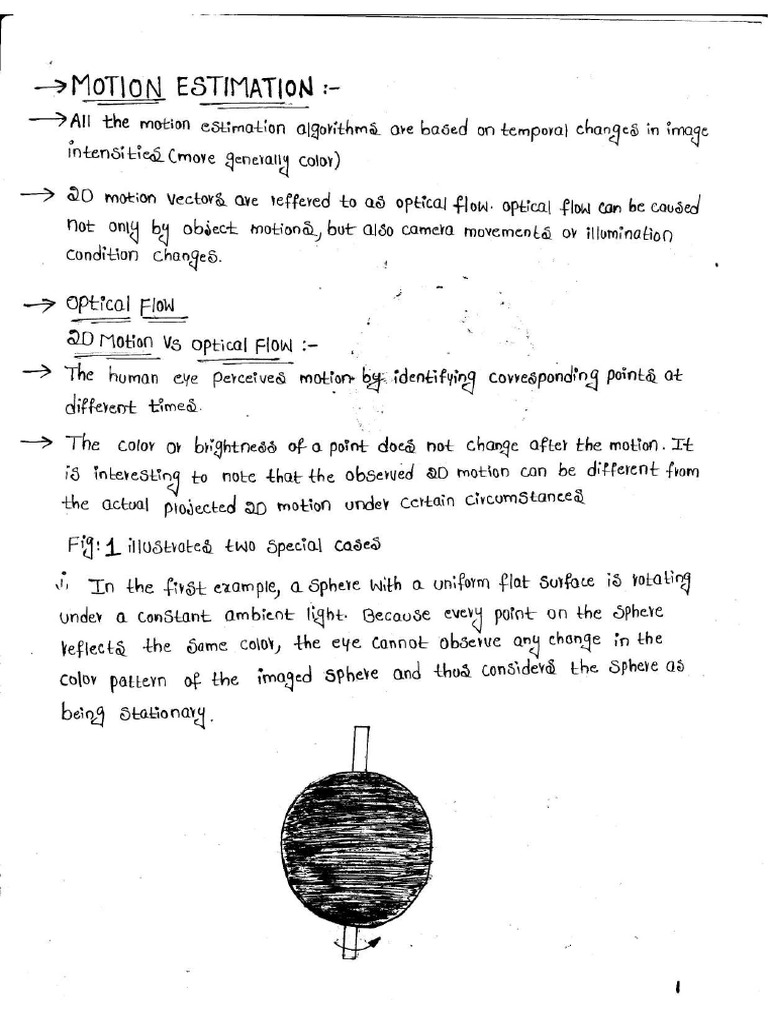 → MOTION ESTIMATION :-
→ All the motion estimation algorithms are based on temporal changes in image
intensities (more generally color)
→ 2D motion vectors are reffered to as optical flow. optical flow can be caused
not only by object motions, but also camera movements or illumination
condition changes.
→ Optical Flow
2D Motion Vs Optical Flow :-
→ The human eye perceives motion by identifying corresponding points at
different times.
→ The color or brightness of a point does not change after the motion. It
is interesting to note that the observed 2D motion can be different from
the actual projected 2D motion under certain circumstances
Fig: 1 illustrates two special cases
i, In the first example, a sphere with a uniform flat surface is rotating
under a constant ambient light. Because every point on the sphere
reflects the same color, the eye cannot observe any change in the
color pattern of the imaged sphere and thus considers the sphere as
being stationary.
1